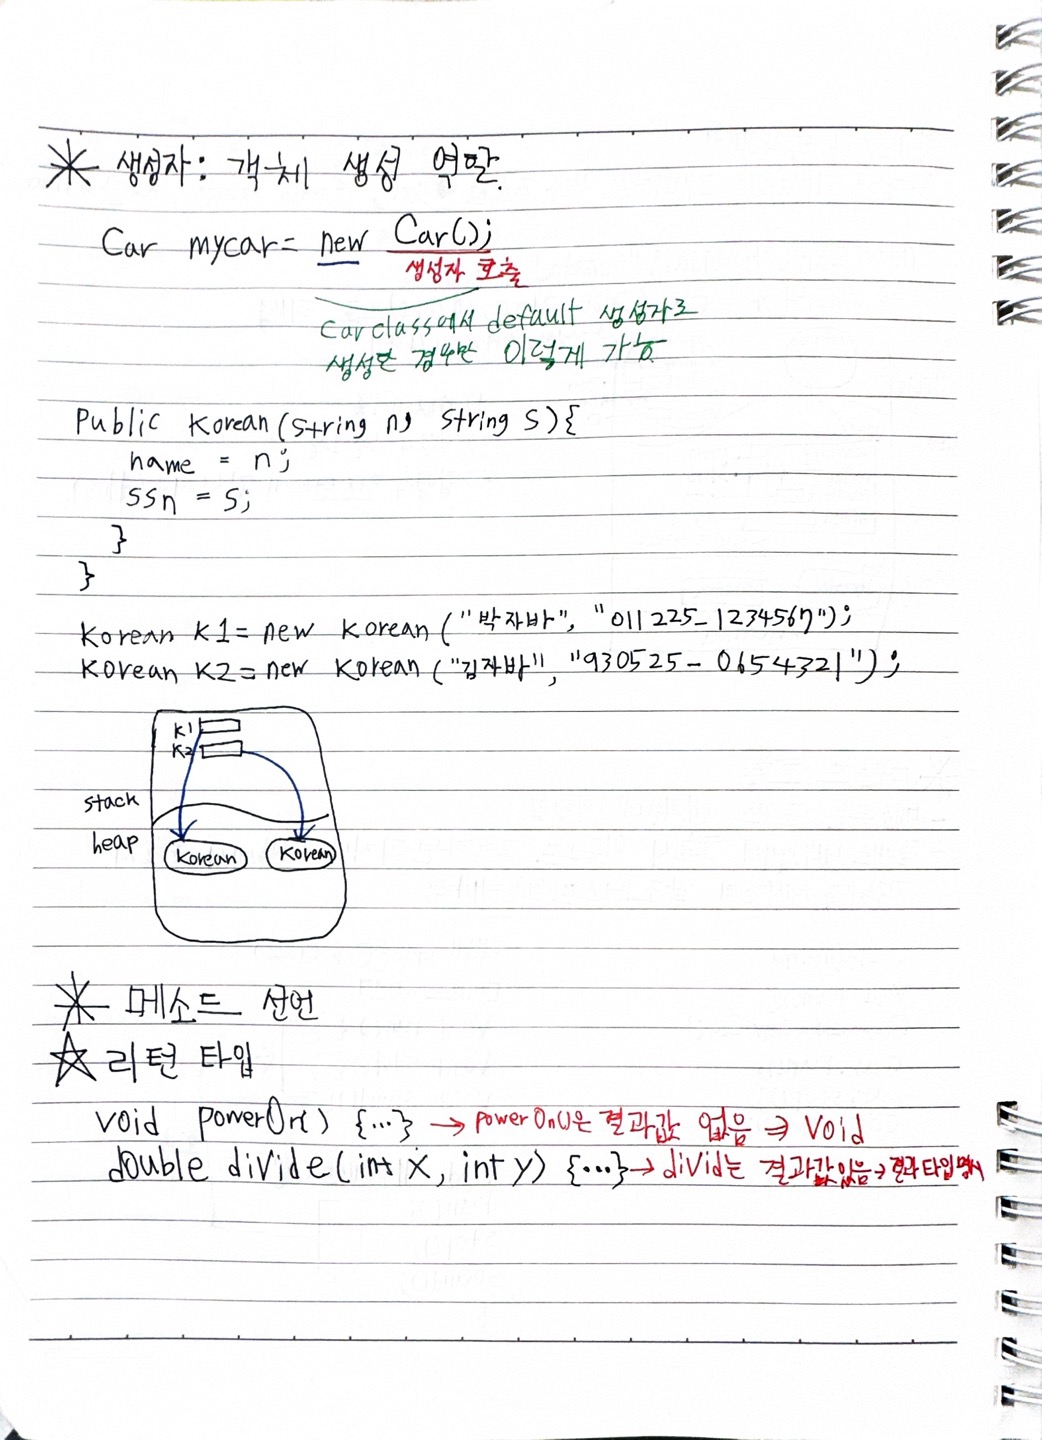 생성자: 객체 생성 역할.
Car mycar = new Car();
생성자 호출
Car class에서 default 생성자로
생성한 경우만 이렇게 가능
Public Korean(String n, String s){
name = n;
ssn = s;
}
}
Korean K1 = new Korean("박자바", "011225-1234567");
Korean K2 = new Korean("김자바", "930525-0654321");
K1
K2
stack
heap
Korean Korean
메소드 선언
☆ 리턴 타입
void powerOn() {...} → powerOn()은 결과값 없음 ⇒ void
double divide(int x, int y) {...} → divid는 결과값 있음 → 결과 타입 명시